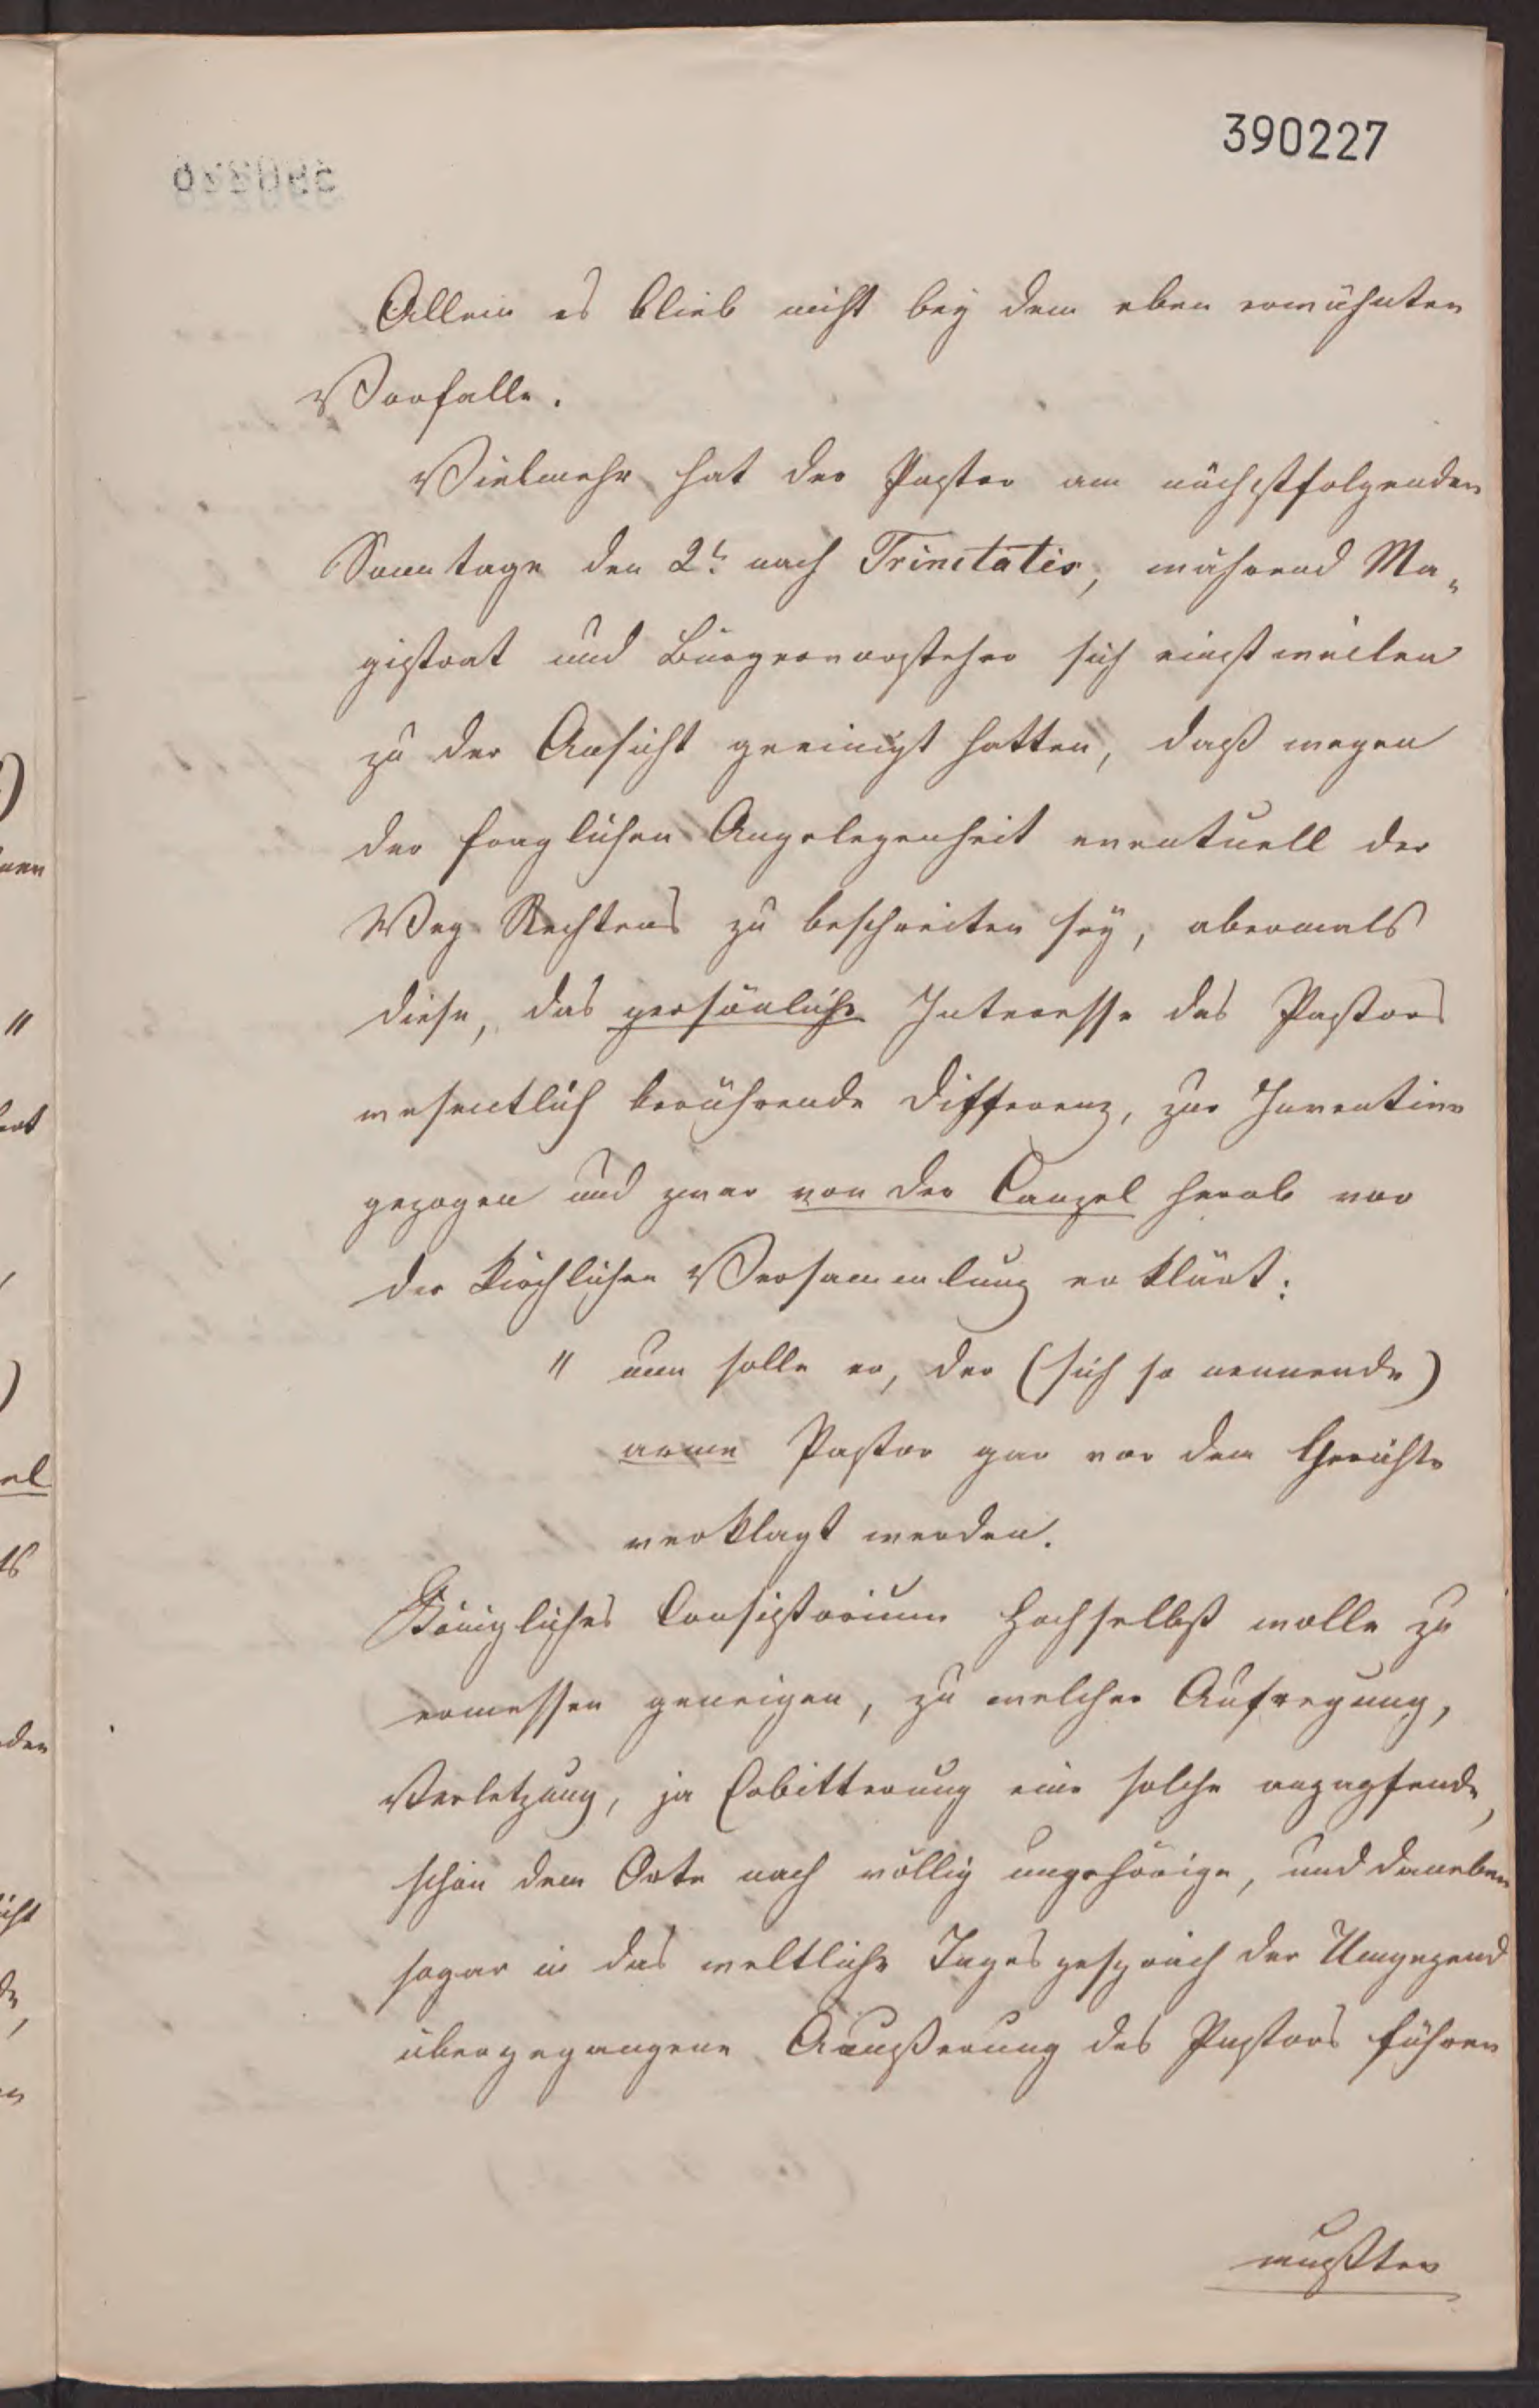 390227
Allein es blieb nicht bey dem eben erwähnten
Vorfalle.
Vielmehr hat der Pastor am nächstfolgenden
Sonntage den 2t. nach Trinitatis, während Ma-
gistrat und Bürgervorsteher sich einstweilen
zu der Ansicht geeinigt hatten, daß wegen
der fraglichen Angelegenheit eventuell der
Weg Rechtens zu beschreiten sey, abermals
diese, das persönliche Interesse des Pastors
wesentlich berührende Differenz, zur Invective
gezogen und zwar von der Canzel herab vor
der kirchlichen Versammlung erklärt:
" nun solle er, der (sich so nennende)
arme Pastor gar vor dem Gerichte
verklagt werden.
Königliches Consistorium Hochselbst wolle zu
ermessen geneigen, zu welcher Aufregung,
Verletzung, ja Erbitterung eine solche anzapfende,
schon dem Orte nach völlig ungehörige, und daneben
sogar in das weltliche Tagesgespräch der Umgegend
übergegangene Aeußerung des Pastors führen
mußten